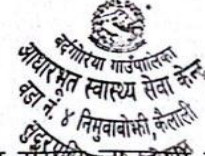 बर्दगोरिया गाउँपालिका
आधारभूत स्वास्थ्य सेवा केन्द्र
वडा नं. ४ निमुवाबोझी, कैलाली